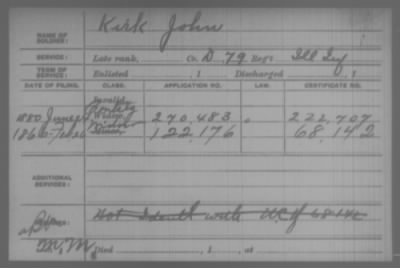 Kirk John
NAME OF SOLDIER:
SERVICE: Late rank, Co. D 79 Reg't Ill Inf
TERM OF SERVICE: Enlisted , 1 Discharged , 1
DATE OF FILING. CLASS. APPLICATION NO. LAW. CERTIFICATE NO.
Invalid
1880 June 270.483 222,707
Minor 122,176 68,142
ADDITIONAL SERVICES:
Not Identl with W.C. 68142
Died , 1 , at